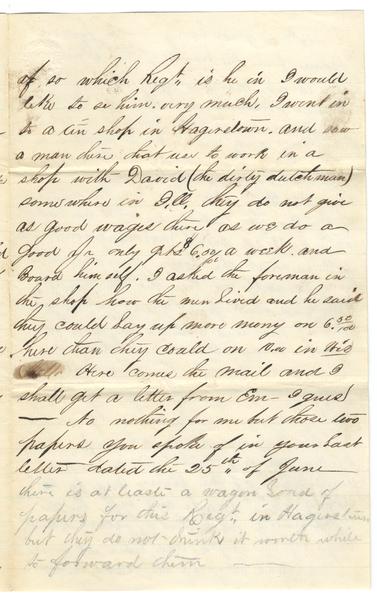 if so which Regt, is he in I would
like to se him very much, I went in
to a tin shop in Hagerstown. and saw
a man there that use to work in a
shop with David (the dirty dutchman)
somewhere in Ill, they do not give
as good wages there as we do a
good Jr only gets $6.00 a week and
Board himself. I asked the foreman in
the shop how the men lived and he said
they could lay up more mony on 6.50/100
here than they could on in Wis
Here comes the mail and I
shall get a letter from Em - I guess
— No nothing for me but those two
papers you spoke of in your last
letter dated the 25th of June
there is at leaste a wagon load of
papers for this Regt, in Hagerstown
but they do not think it worth while
to forward them —